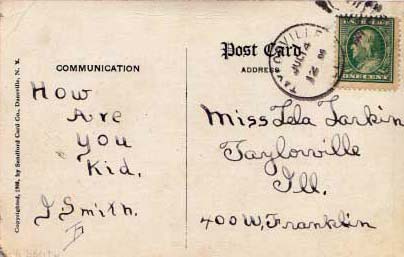 Post Card
COMMUNICATION
ADDRESS
How
Are
You
Kid.
J. Smith.
Miss Lela Larkin
Taylorville
Ill.
400 W. Franklin
TAYLORVILLE
JUL 4
12 M
ONE CENT
Copyrighted, 1908, by Sandford Card Co., Dansville, N. Y.